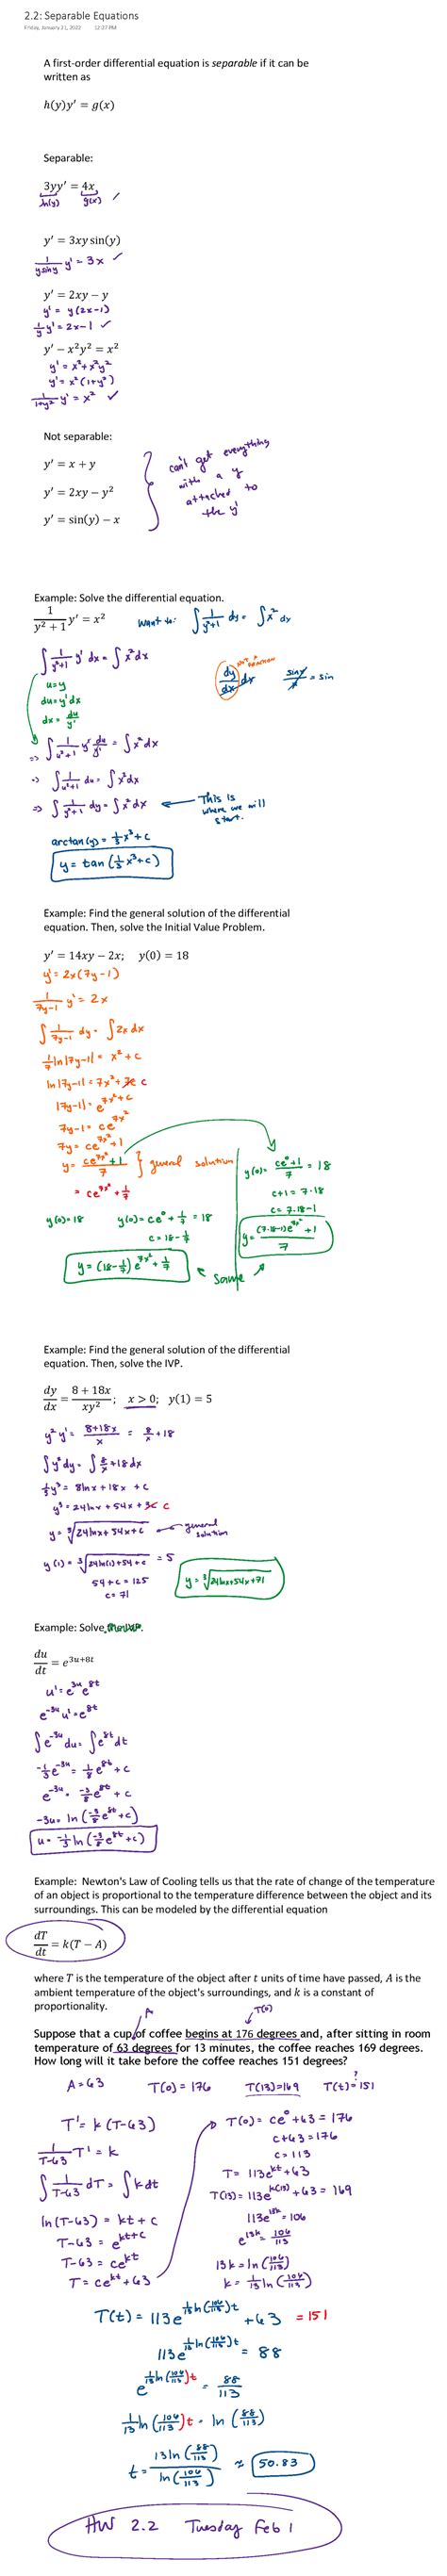 2.2: Separable Equations
Friday, January 21, 2022 12:37 PM
A first-order differential equation is separable if it can be
written as
h(y)y' = g(x)
Separable:
3yy' = 4x ✓
h(y) g(x)
y' = 3xy sin(y)
1/(y sin y) y' = 3x ✓
y' = 2xy − y
y' = y(2x-1)
1/y y' = 2x-1 ✓
y' − x²y² = x²
y' = x² + x²y²
y' = x²(1+y²)
1/(1+y²) y' = x² ✓
Not separable:
y' = x + y
y' = 2xy − y²
y' = sin(y) − x
can't get everything
with a y
attached to
the y'
Example: Solve the differential equation.
1/(y² + 1) y' = x²
∫ 1/(y²+1) dy = ∫ x² dx
∫ 1/(y²+1) y' dx = ∫ x² dx
u=y
du=y'dx
dx = du/y'
dy/dx dx
=> ∫ 1/(u²+1) y' du/y' = ∫ x² dx
=> ∫ 1/(u²+1) du = ∫ x² dx
=> ∫ 1/(y²+1) dy = ∫ x² dx
This is
where we will
start.
arctan(y) = 1/3 x³ + c
y = tan(1/3 x³ + c)
Example: Find the general solution of the differential
equation. Then, solve the Initial Value Problem.
y' = 14xy − 2x; y(0) = 18
y' = 2x(7y-1)
1/(7y-1) y' = 2x
∫ 1/(7y-1) dy = ∫ 2x dx
1/7 ln|7y-1| = x² + c
ln|7y-1| = 7x² + 7c c
|7y-1| = e^(7x²+c)
7y-1 = ce^(7x²)
7y = ce^(7x²) + 1
y = (ce^(7x²) + 1)/7 } general solution
= ce^(7x²) + 1/7
y(0)=18 y(0) = ce⁰ + 1/7 = 18
c = 18 - 1/7
y = (18 - 1/7)e^(7x²) + 1/7
y(0) = (ce⁰+1)/7 = 18
c+1 = 7·18
c = 7·18-1
y = ((7·18-1)e^(7x²) + 1)/7
same
Example: Find the general solution of the differential
equation. Then, solve the IVP.
dy/dx = (8 + 18x)/(xy²); x > 0; y(1) = 5
y² y' = (8+18x)/x = 8/x + 18
∫ y² dy = ∫ 8/x + 18 dx
1/3 y³ = 8lnx + 18x + c
y³ = 24lnx + 54x + 3c c
y = ∛(24lnx + 54x + c) general
solution
y(1) = ∛(24ln(1) + 54 + c) = 5
54 + c = 125
c = 71
y = ∛(24lnx + 54x + 71)
Example: Solve
du/dt = e^(3u+8t)
u' = e^(3u) e^(8t)
e^(-3u) u' = e^(8t)
∫ e^(-3u) du = ∫ e^(8t) dt
-1/3 e^(-3u) = 1/8 e^(8t) + c
e^(-3u) = -3/8 e^(8t) + c
-3u = ln(-3/8 e^(8t) + c)
u = -1/3 ln(-3/8 e^(8t) + c)
Example: Newton's Law of Cooling tells us that the rate of change of the temperature
of an object is proportional to the temperature difference between the object and its
surroundings. This can be modeled by the differential equation
dT/dt = k(T − A)
where T is the temperature of the object after t units of time have passed, A is the
ambient temperature of the object's surroundings, and k is a constant of
proportionality.
A T(0)
Suppose that a cup of coffee begins at 176 degrees and, after sitting in room
temperature of 63 degrees for 13 minutes, the coffee reaches 169 degrees.
How long will it take before the coffee reaches 151 degrees?
A=63 T(0) = 176 T(13)=169 T(t)=151
?
T' = k(T-63)
1/(T-63) T' = k
∫ 1/(T-63) dT = ∫ k dt
ln(T-63) = kt + c
T-63 = e^(kt+c)
T-63 = ce^(kt)
T = ce^(kt) + 63
T(0) = ce⁰ + 63 = 176
c+63 = 176
c = 113
T = 113e^(kt) + 63
T(13) = 113e^(k(13)) + 63 = 169
113e^(13k) = 106
e^(13k) = 106/113
13k = ln(106/113)
k = 1/13 ln(106/113)
T(t) = 113e^(1/13 ln(106/113)t) + 63 = 151
113e^(1/13 ln(106/113)t) = 88
e^(1/13 ln(106/113)t) = 88/113
1/13 ln(106/113)t = ln(88/113)
t = 13ln(88/113)/ln(106/113) ≈ 50.83
HW 2.2 Tuesday Feb 1